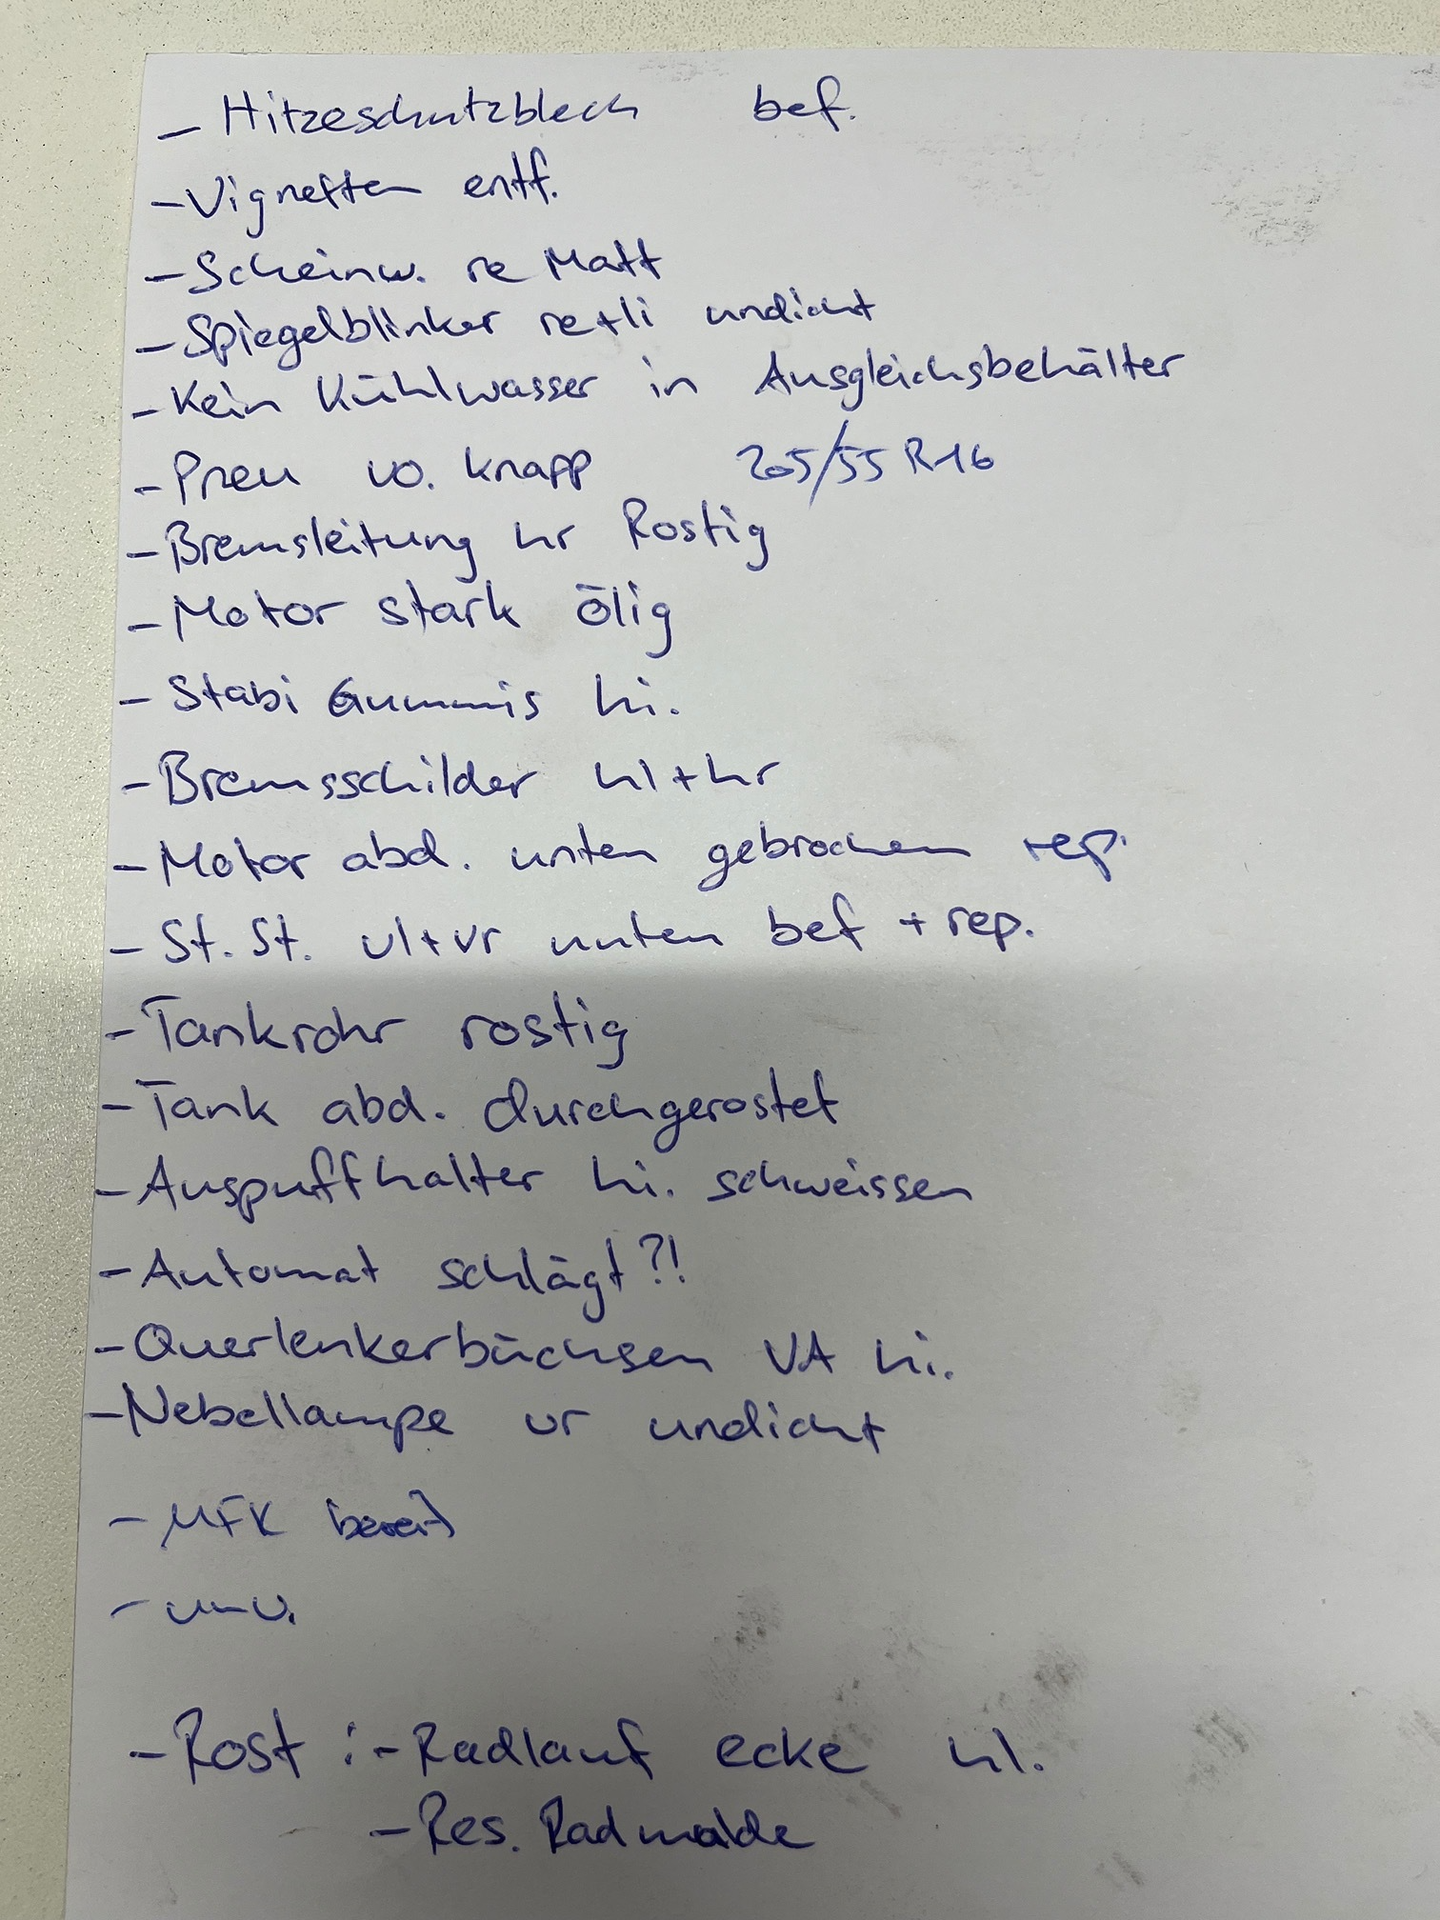 - Hitzeschutzblech bef.
- Vignetten entf.
- Scheinw. re Matt
- Spiegelblinker re+li undicht
- Kein Kühlwasser in Ausgleichsbehälter
- Pneu vo. knapp 205/55 R16
- Bremsleitung hr Rostig
- Motor stark ölig
- Stabi Gummis hi.
- Bremsschilder hl+hr
- Motor abd. unten gebrochen rep.
- St. St. vl+vr unten bef + rep.
- Tankrohr rostig
- Tank abd. durchgerostet
- Auspuffhalter hi. schweissen
- Automat schlägt?!
- Querlenkerbüchsen VA hi.
- Nebellampe vr undicht
- MFK bereit
-
- Rost : - Radlauf ecke hl.
- Res. Radmulde